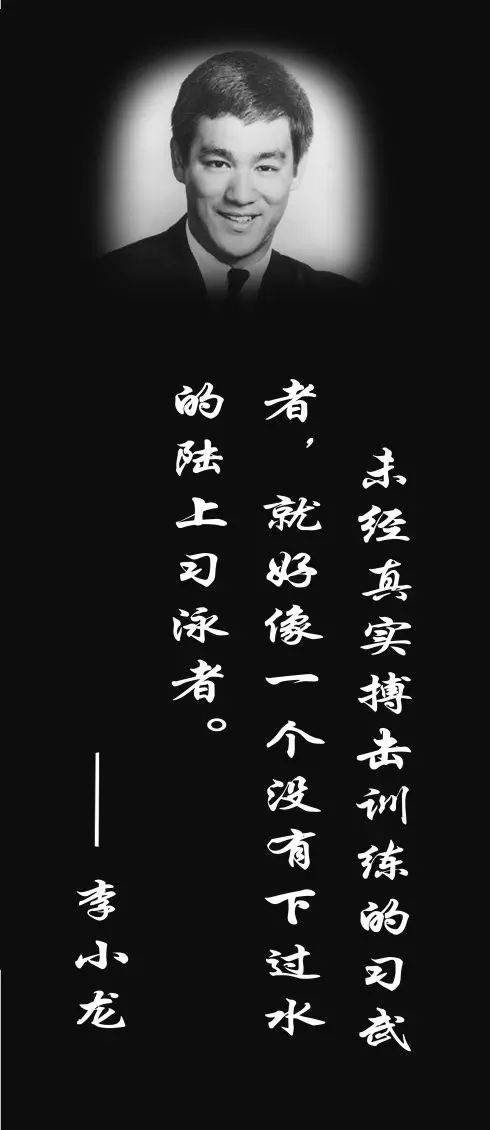 未经真实搏击训练的习武
者，就好像一个没有下过水
的陆上习泳者。
——李小龙